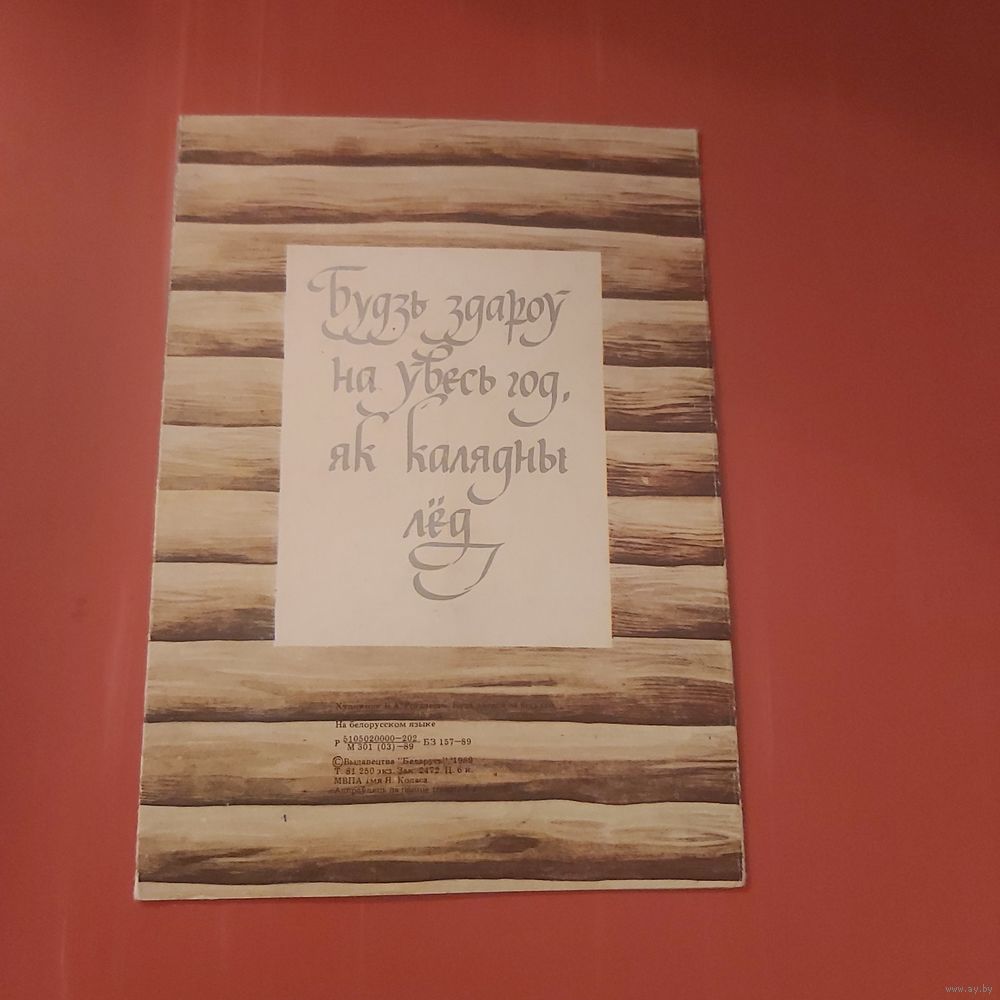 Будзь здароў
на ўвесь год,
як калядны
лёд
На белорусском языке
Р 5105020000—202 БЗ 157—89
М 301 (03)—89
© Выдавецтва "Беларусь" 1989
Т. 81 250 экз. Зак. 2472. Ц. 6 к.
МВПА імя Я. Коласа
www.ay.by